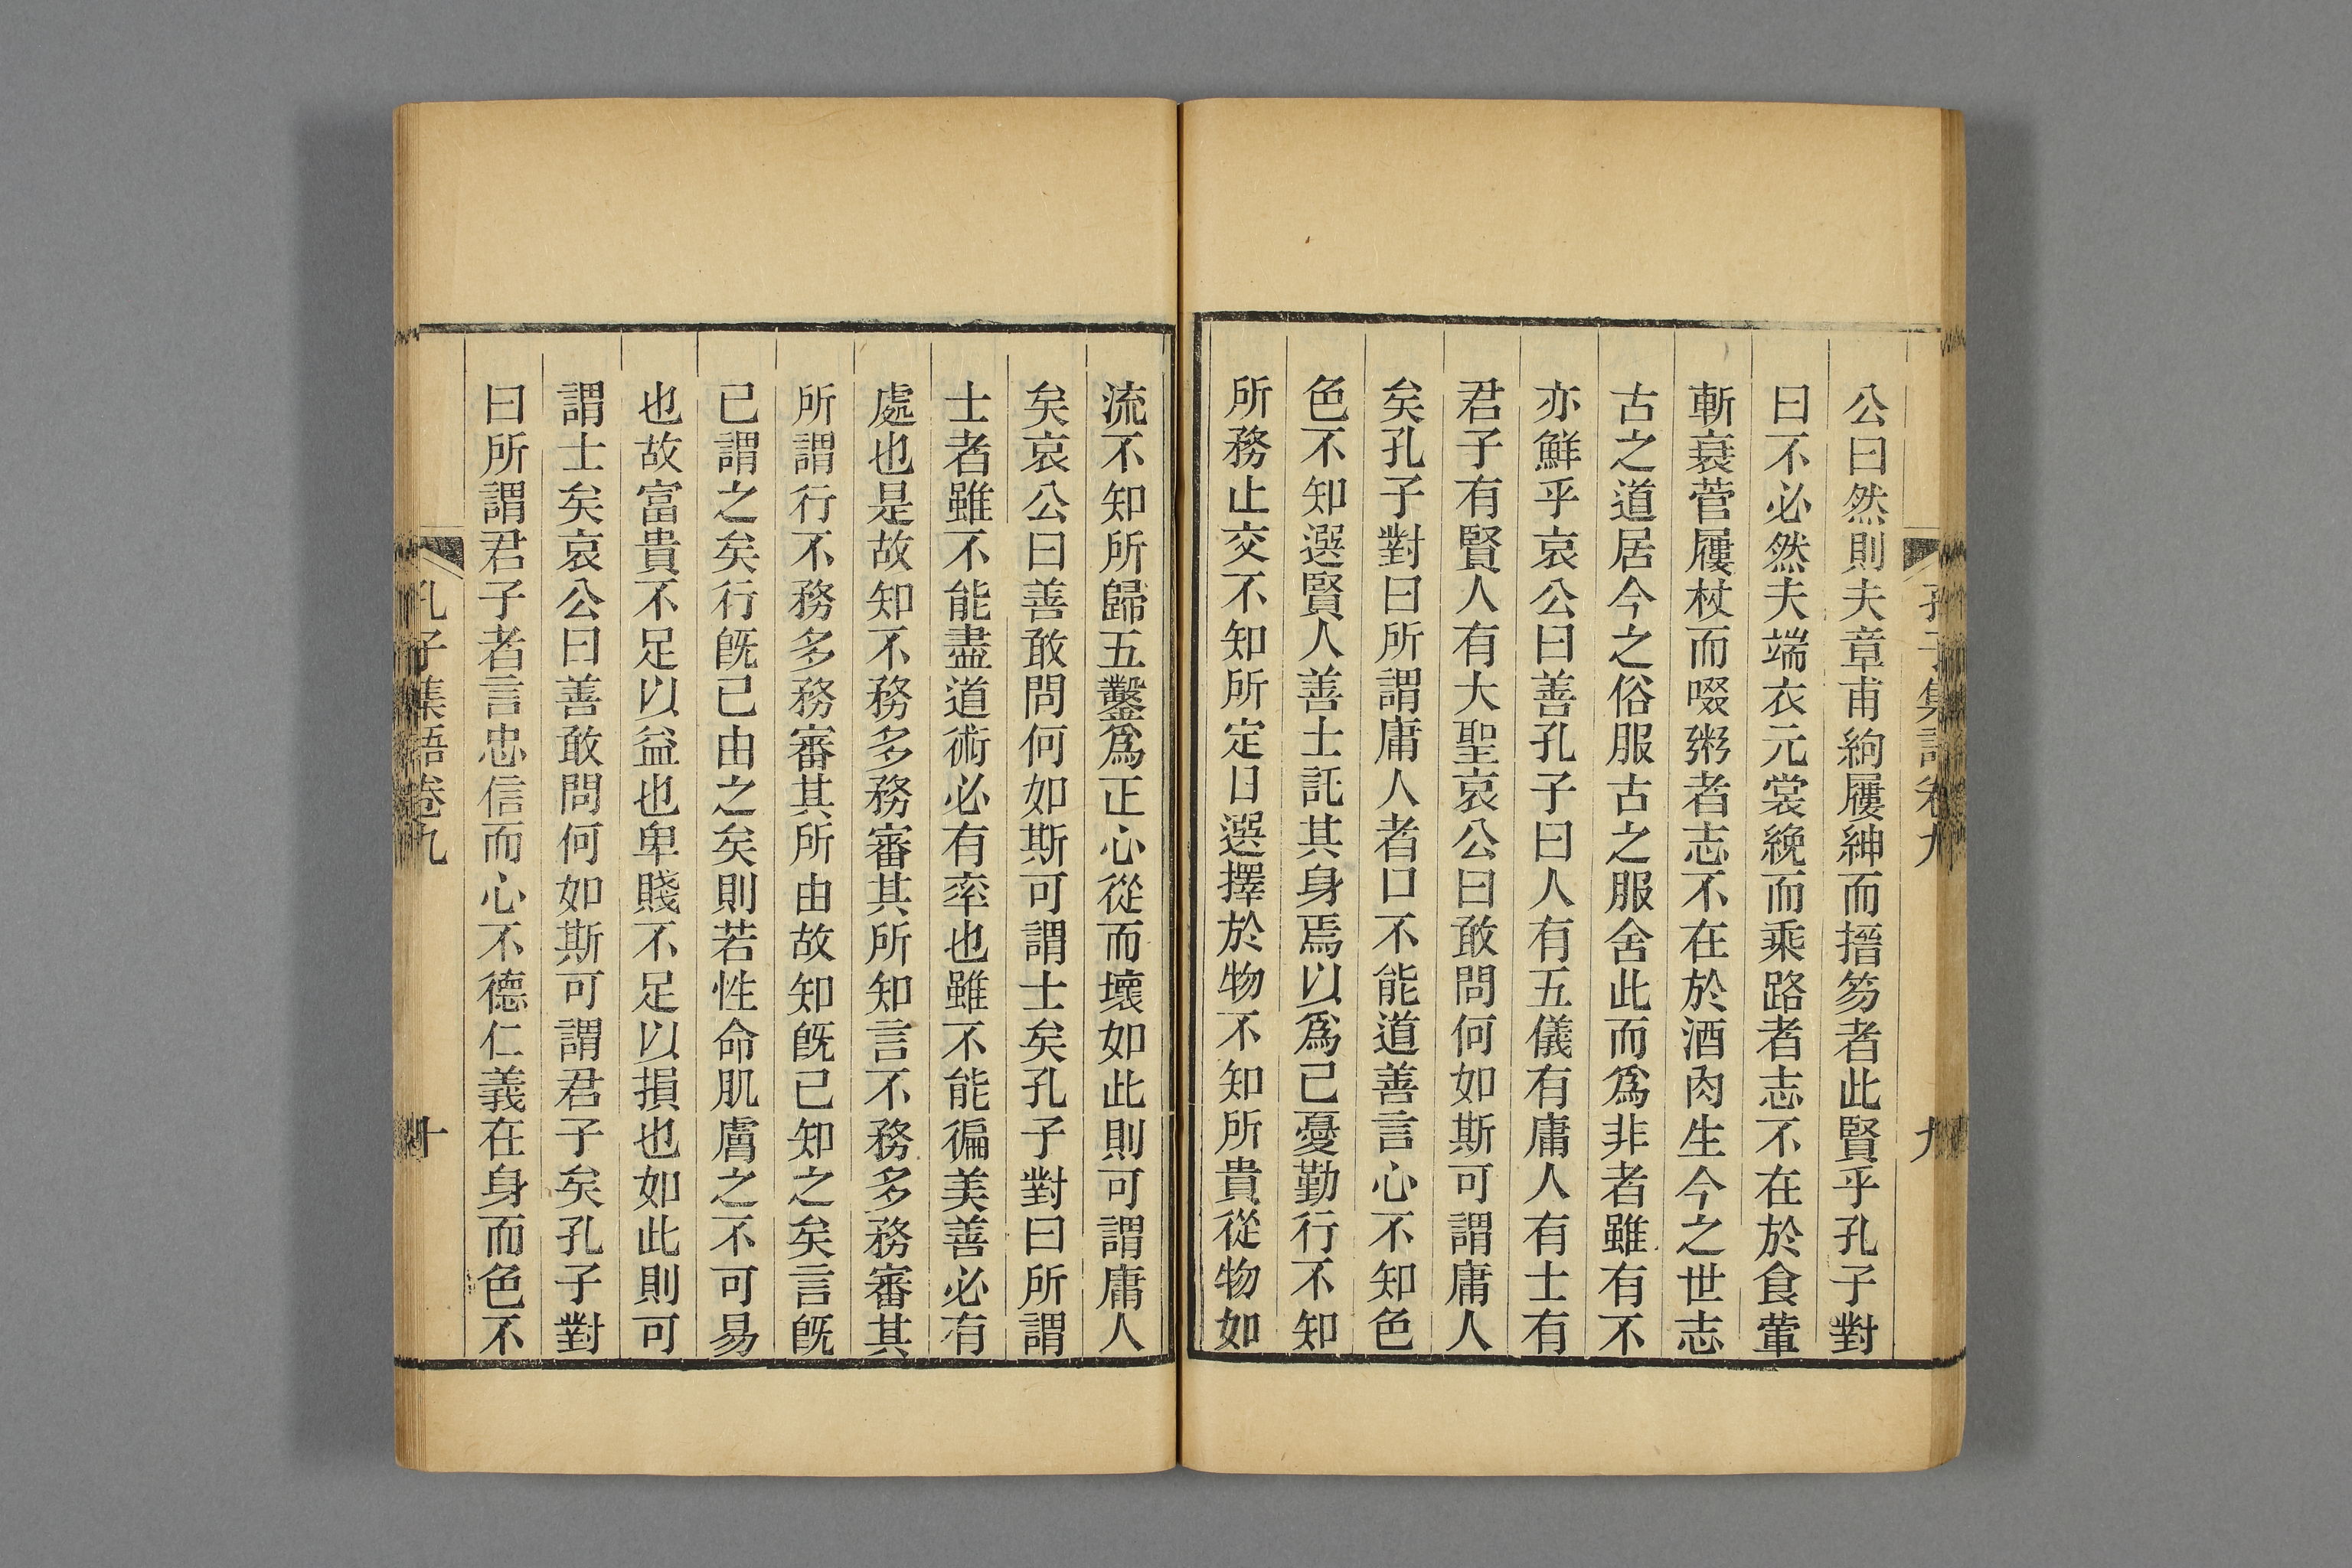 公曰然則夫章甫絇屨紳而搢笏者此賢乎孔子對
曰不必然夫端衣元裳絻而乘路者志不在於食葷
斬衰菅屨杖而啜粥者志不在於酒肉生今之世志
古之道居今之俗服古之服舍此而爲非者雖有不
亦鮮乎哀公曰善孔子曰人有五儀有庸人有士有
君子有賢人有大聖哀公曰敢問何如斯可謂庸人
矣孔子對曰所謂庸人者口不能道善言心不知色
色不知選賢人善士託其身焉以爲己憂勤行不知
所務止交不知所定日選擇於物不知所貴從物如
孔子集語卷九
九
流不知所歸五鑿爲正心從而壞如此則可謂庸人
矣哀公曰善敢問何如斯可謂士矣孔子對曰所謂
士者雖不能盡道術必有率也雖不能徧美善必有
處也是故知不務多務審其所知言不務多務審其
所謂行不務多務審其所由故知旣已知之矣言旣
已謂之矣行旣已由之矣則若性命肌膚之不可易
也故富貴不足以益也卑賤不足以損也如此則可
謂士矣哀公曰善敢問何如斯可謂君子矣孔子對
曰所謂君子者言忠信而心不德仁義在身而色不
孔子集語卷九
十